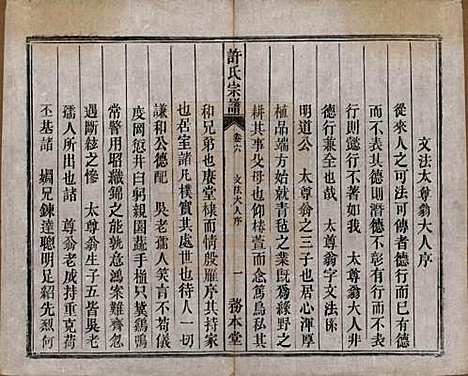 文法太尊翁大人序
從來人之可法可傳者德行而已有德
行則行於以著無德行則德不顯若
德行兼全也哉 太尊翁字文法係
明道公 太尊翁之三子也居心渾厚
植品端方始焉就青毡之業既為綠野之
耕其事父母也仰椿萱而篤烏私其
許氏宗譜 卷六 文法大人序 一 務本堂
和兄弟也庚堂棣而情殷雁序其持家
也居室諸凡樸實其處世也待人一切
謙和公德配 吳老孺人笑言不苟儀
度罔愆井臼躬親園蔬手植只冀鷄鳴
常警用昭織錦之能孰意鴻案難齊忽
遇斷絃之慘 太尊翁生子五皆吳老
孺人所出也諸 尊翁老成持重克荷
丕基諸 嫺兄鍊達聰明足紹先烈何